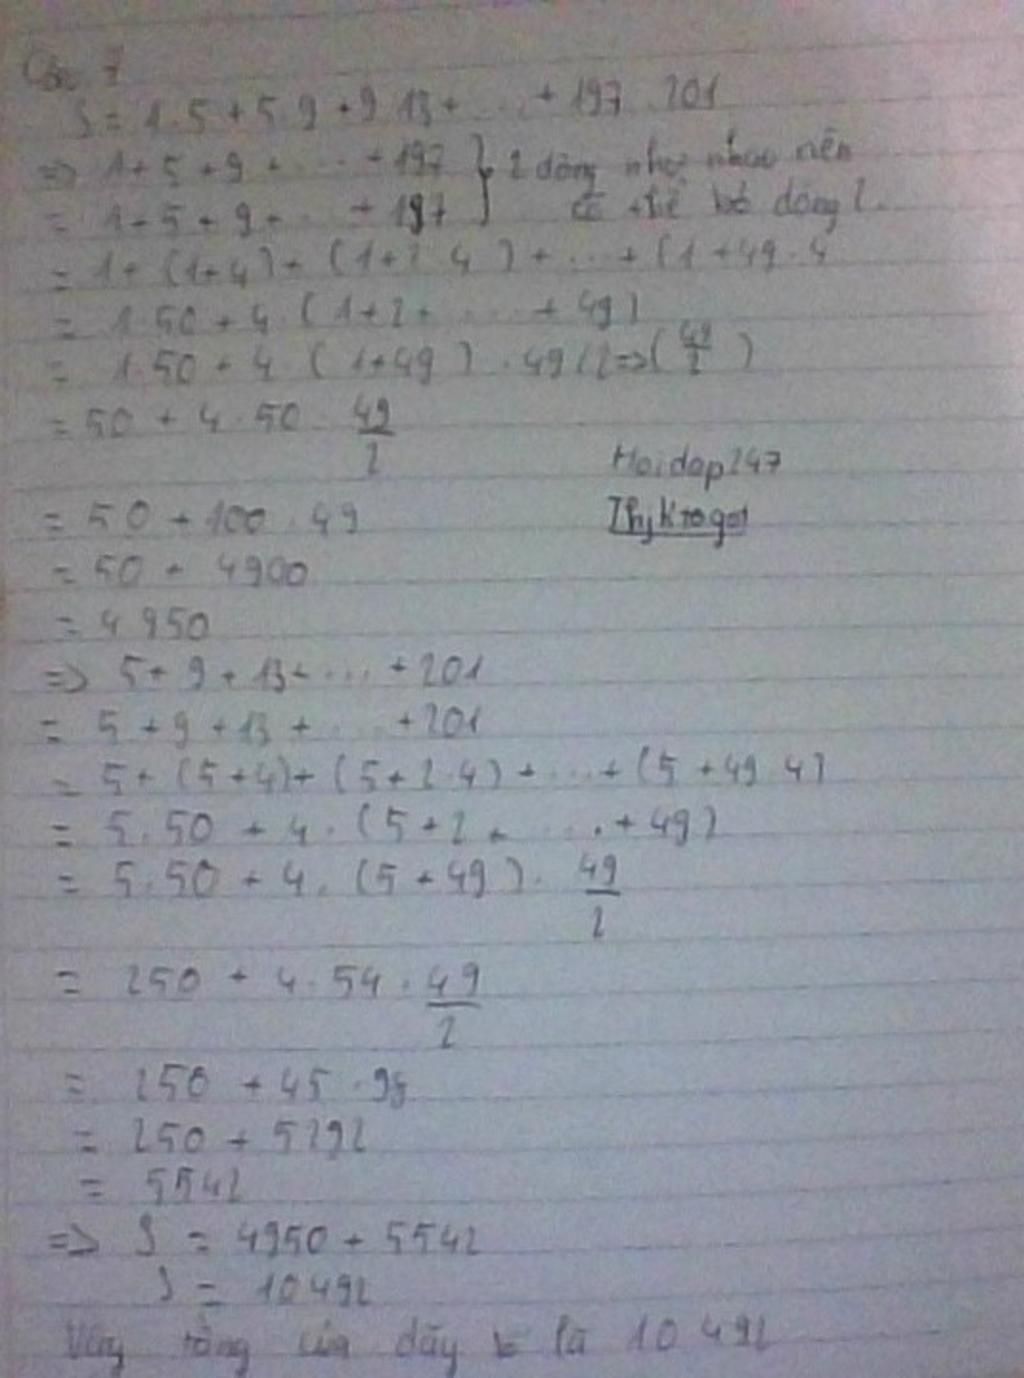 Câu 7
S = 1.5 + 5.9 + 9.13 + ... + 197.201
=> 1 + 5 + 9 + ... + 197 } 2 dòng như nhau nên
= 1 + 5 + 9 + ... + 197 có thể bỏ dòng 2.
= 1 + (1+4) + (1+2.4) + ... + (1+49.4
= 1.50 + 4.(1+2+ ... + 49)
= 1.50 + 4.(1+49).49/2 => (49/2)
= 50 + 4.50.49/2
Hoidap247
= 50 + 100.49
= 50 + 4900
= 4950
=> 5 + 9 + 13 + ... + 201
= 5 + 9 + 13 + ... + 201
= 5 + (5+4) + (5+2.4) + ... + (5+49.4)
= 5.50 + 4.(5+2+ ... + 49)
= 5.50 + 4.(5+49).49/2
= 250 + 4.54.49/2
= 250 + 5292
= 5542
=> S = 4950 + 5542
S = 10492
Vậy tổng của dãy là 10492